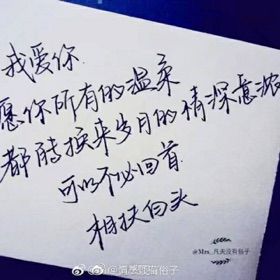 我爱你.
愿你所有的温柔
都能换来岁月的情深意浓
可以不必回首
相扶白头
@Mrs_凡夫没有俗子